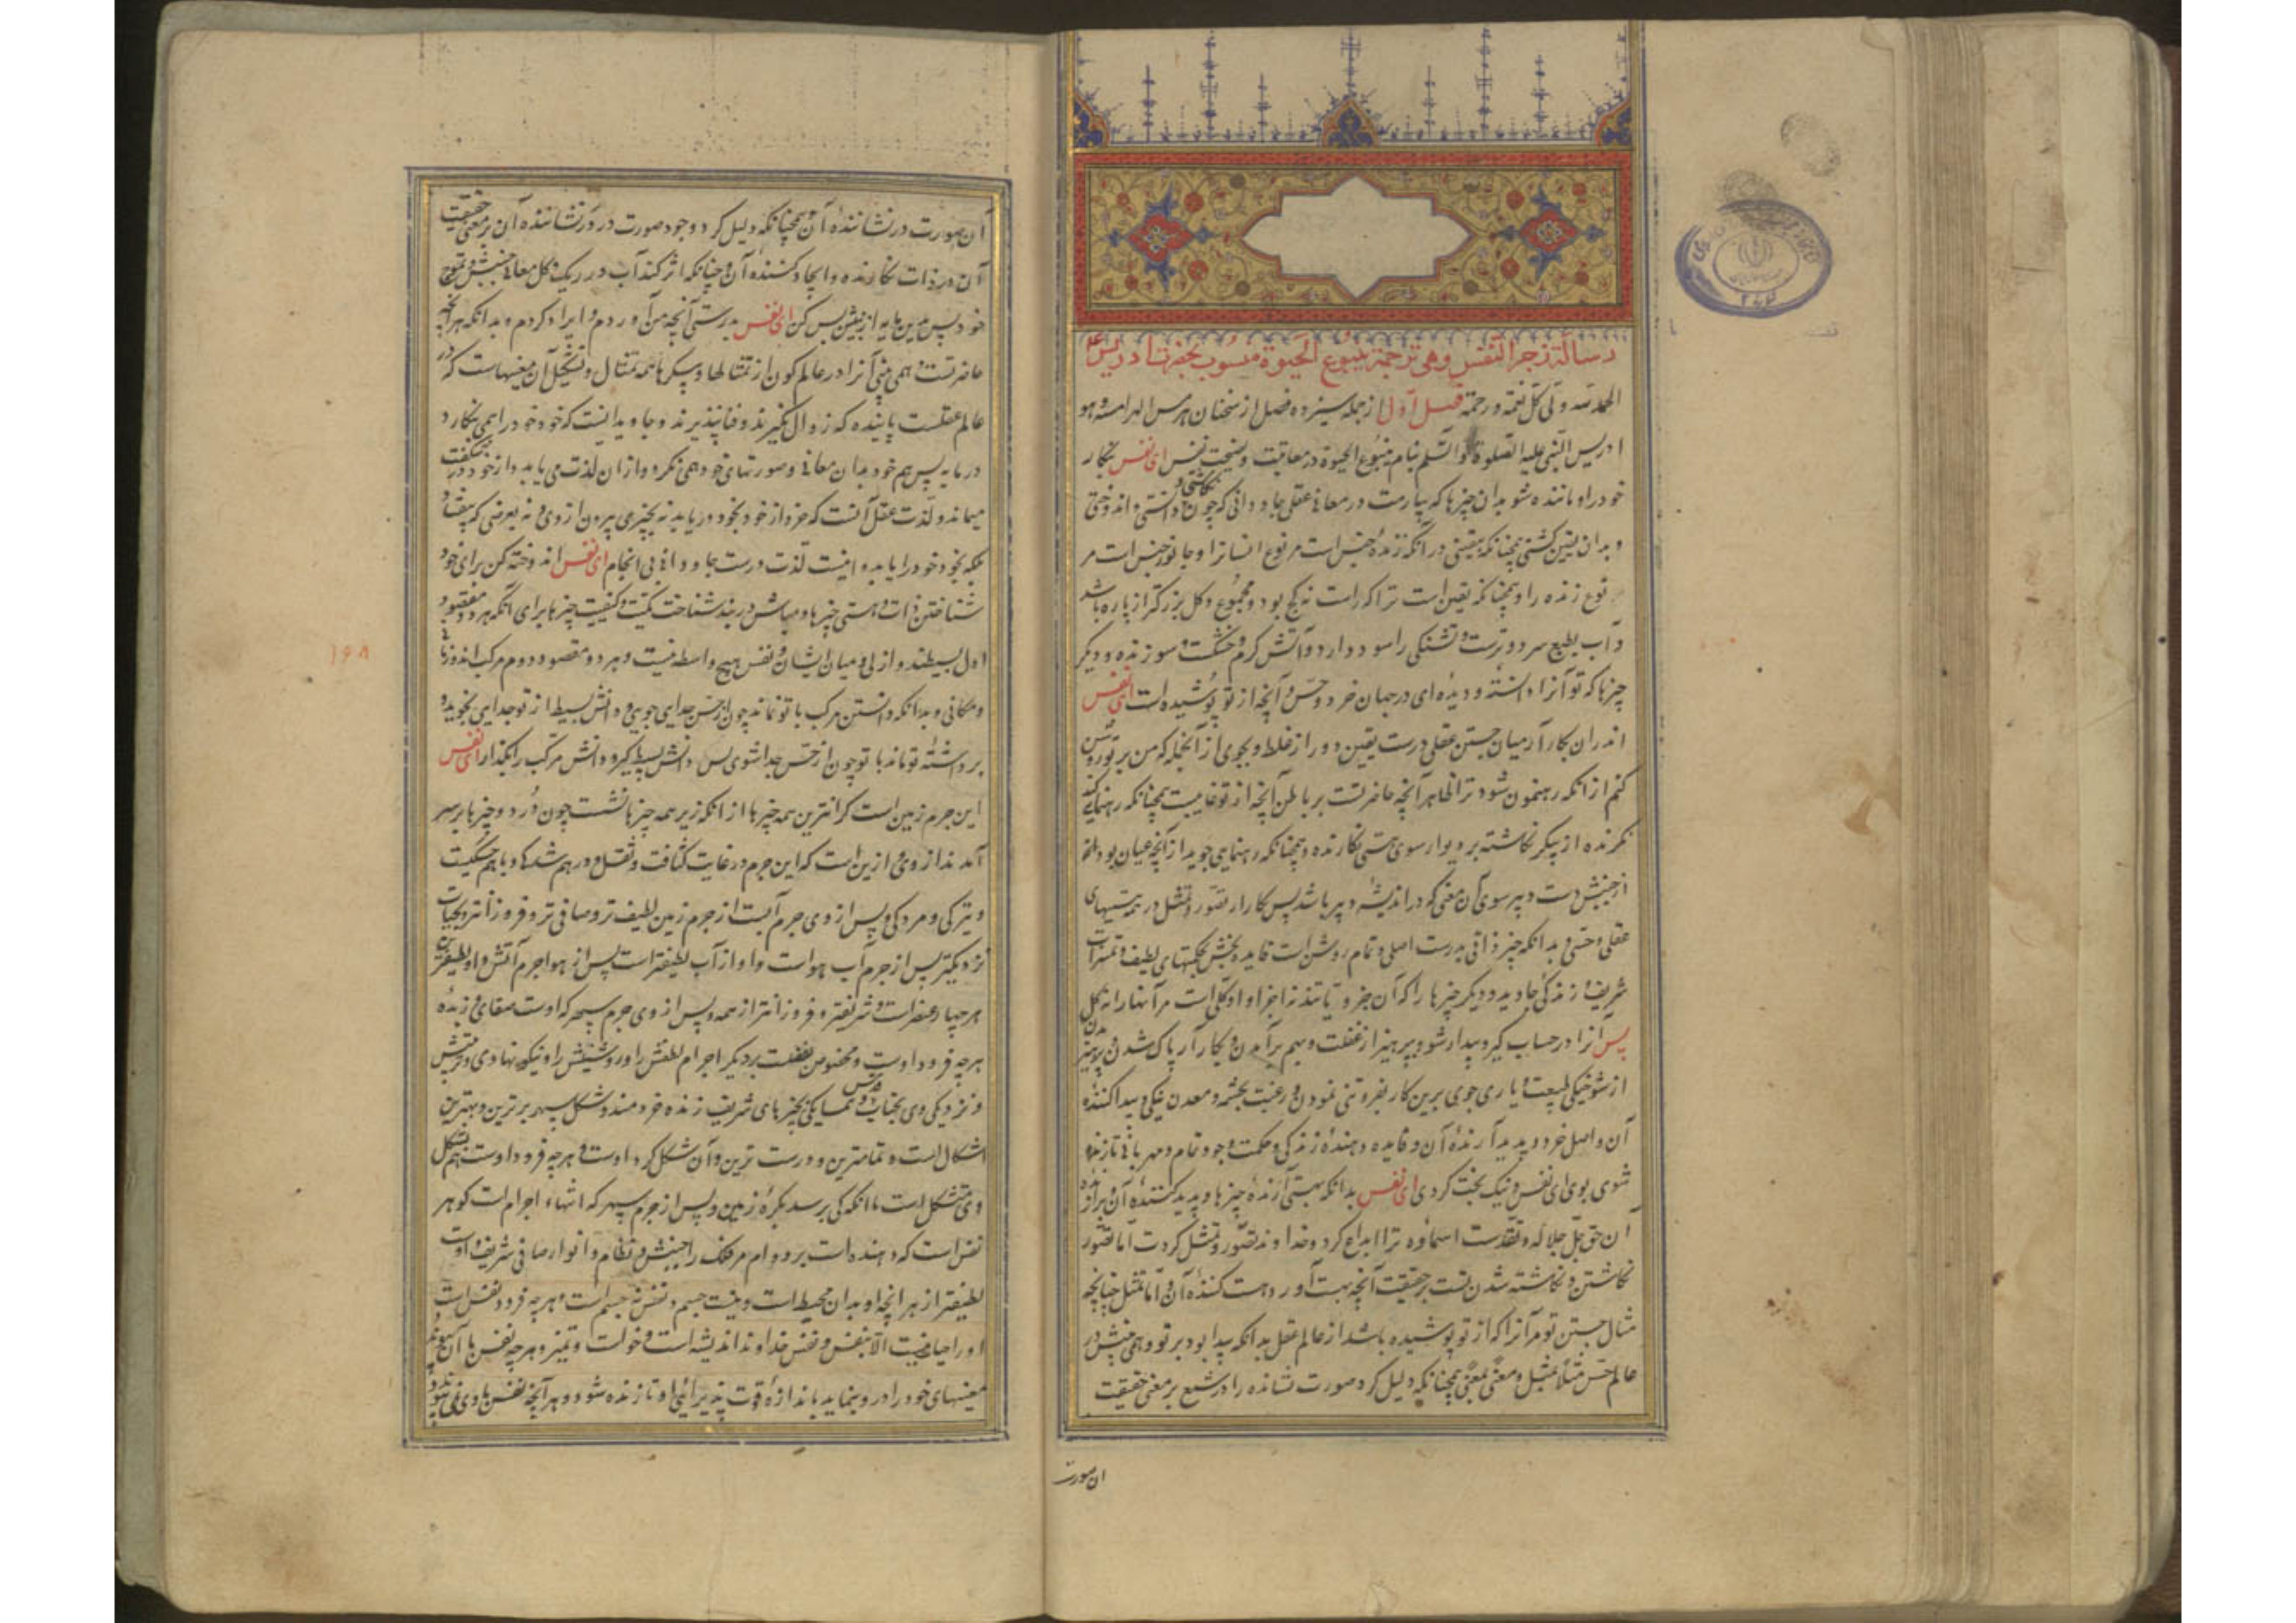 رسالة زجر النفس وهی ترجمة ینبوع الحیوة منسوب بحضرت ادریس ع
الحمد لله ولی کل نعمة و رحمة فصل اول از جمله سیزده فصل از سخنان هرمس الهرامسه و هو
ادریس النبی علیه الصلوة و السلم بنام ینبوع الحیوة در معاتبت و نصیحت نفس ای نفس بنگار
خود را و ماننده شو بدان چیزها که بیارمت در معانی عقلی جاودانی که چون دانستی و اندوختی
و بدان یقین گشتی همچنانکه بیقینی در آنکه زنده جنس است مر نوع انسانرا و جانور جنس است مر
نوع زنده را و همچنانکه یقین است ترا که راست نه کج بود و مجموع و کل بزرگتر از پاره باشد
و آب بطبع سرد و ترست و تشنگی را سود دارد و آتش گرم و خشکست و سوزنده و دیگر
چیزها که تو آنرا دانسته و دیده‌ای در جهان خرد و حس و آنچه از تو پوشیده است ای نفس
اندران بکار آر میان جستن عقلی درست یقین دور از غلط و بجوی از آنجمله که من بر تو روشن
کنم از آنکه رهنمون شود ترا ظاهر آنچه حاضر تست بر باطن آنچه از تو غایبست همچنانکه رهنمایی کند
نگرنده از پیکر نگاشته بر دیوار سوی هستی نگارنده و همچنانکه رهنمایی جوید از آنچه عیان بود
از جنبش دست دبیر سوی آن معنی که در اندیشه دبیر باشد پس کار دار تصور و تمثل در همه هستیهای
عقلی و حسی و بدانکه چیز ذاتی بدرست اصلی و تمام روشن است فایده بخش بحکمتهای لطیف و ثمرات
شریف و زندگی جاوید و دیگر چیزها را که آن جزو یا تند نه اجزا و او کلی است مر آنها را نه کل
پس آنرا در حساب گیر و بیدار شو و بپرهیز از غفلت و بهم برآمدن و بکار آر پاک شدن و پرهیز
از شوخیگی طبیعت و یاری جوی برین کار بفروتنی نمودن و رغبت بچشمه و معدن نیکی و پیدا کننده
آن و اصل خرد و پدید آرنده آن و فایده دهنده زندگی و حکمت و جود تمام و مهربانی تا زنده
شوی بوی ای نفس و نیک بخت گردی ای نفس بدانکه بهستی آرنده چیزها و پدید کننده آن
آن حق جل جلاله و تقدست اسماوه ترا ابداع کرد و خداوند تصور و تمثل کردت اما تصور
نگاشتن و نگاشته شدن تست بر حقیقت آنچه بهست آورد هست کننده آن و اما تمثل چنانچه
مثال جستن تو مر آنرا که از تو پوشیده باشد از عالم عقل بدانکه پیدا بود بر تو و همی بینیش در
عالم حس مثلا بمثل و معنی بمعنی همچنانکه دلیل کرد صورت نشانده را در شمع بر معنی حقیقت
ان صورت
آن صورت در نشاننده آن و همچنانکه دلیل کرد وجود صورت در نشاننده آن بر معنی حقیقت
آن در ذات نگارنده و ایجاد کننده آن و چنانکه اثر کند آب در ریگ و گل معانی جنبش و تموج
خود پس بدین مایه از بینش بس کن ای نفس بدرستی آنچه من آوردم و ایراد کردم و بدانکه هر آنچه
حاضر تست و همی بینی آنرا در عالم کون از تمثالها و پیکرها همه تمثال و تشکیل آن معنیهاست که در
عالم عقلست پاینده که زوال نگیرند و فنا نپذیرند و جاوید اینست که خود خود را همی نگارد
در مایه پس هم خود بدان معانی و صورتهای خود همی نگرد و از ان لذت می یابد و از خود در شگفت
میماند و لذت عقل آنست که خرد از خود بخود دریابد نه بچیزی بیرون از وی و نه بعرضی که بیفتد
بلکه بخود خود را یابد و اینست لذت درست جاودانی بی انجام ای نفس اندوخته کن برای خود
شناختن ذات و هستی چیزها و مباش در بند شناخت کمیت و کیفیت چیزها برای آنکه هر دو مقصود
اول بسیطند و ازلی و میان ایشان و نفس هیچ واسطه نیست و هر دو مقصود دوم مرکب اند و زمانی
و مکانی و بدانکه دانستن مرکب با تو نماند چون از حس جدایی جویی و دانش بسیط از تو جدایی نجوید و
برداشته تو ماند با تو چون از حس جدا شوی پس دانش بسیط گیر و دانش مرکب را بگذار ای نفس
این جرم زمین است گرانترین همه چیزها از آنکه زیر همه چیزها نشست چون درد و چیزها بر سر
آمدند از وی و ازین است که این جرم در غایت کثافت و ثقل و درهم شدگی و باهم جستگیست
و تیرگی و مردگی و پس از وی جرم آبست از جرم زمین لطیف تر و صافی تر و فروزانتر و بحیات
نزدیکتر پس از جرم آب هواست و او از آب لطیفتر است پس از هوا جرم آتش و او لطیفترین
هر چهار عنصر است و شریفتر و فروزانتر از همه و پس از وی جرم سپهر که اوست صفای و زبده
هر چه فرود اوست و مخصوص بفضیلت بر دیگر اجرام لطفش را و روشنیش را و نیکو نهادی و ترتیبش
و نزدیکی وی بحیات و همسایگی بچیزهای شریف زنده خردمند و شکل سپهر برترین و بهترین
اشکال است و تمامترین و درست ترین و آن شکل گرد اوست و هر چه فرود اوست هم بشکل
وی متشکل است تا آنکه که برسد بکره زمین و پس از جرم سپهر که انتهاء اجرام است گوهر
نفس است که دهنده است بر دوام مر فلک را جنبش و نظام و انوار صافی شریف و اوست
لطیفتر از هر آنچه او بدان محیط است و نیست جسم و تنش نه جسم است و هر چه فرود نفس است
او را حیاة نیست الا بنفس و نفس خداوند اندیشه است و خواست و تمیز و هر چه نفس با آن
معنیهای خود را درو بنماید باندازه قوت پذیرائی او تا زنده شود و هر آنچه نفس با وی
۱۹۸